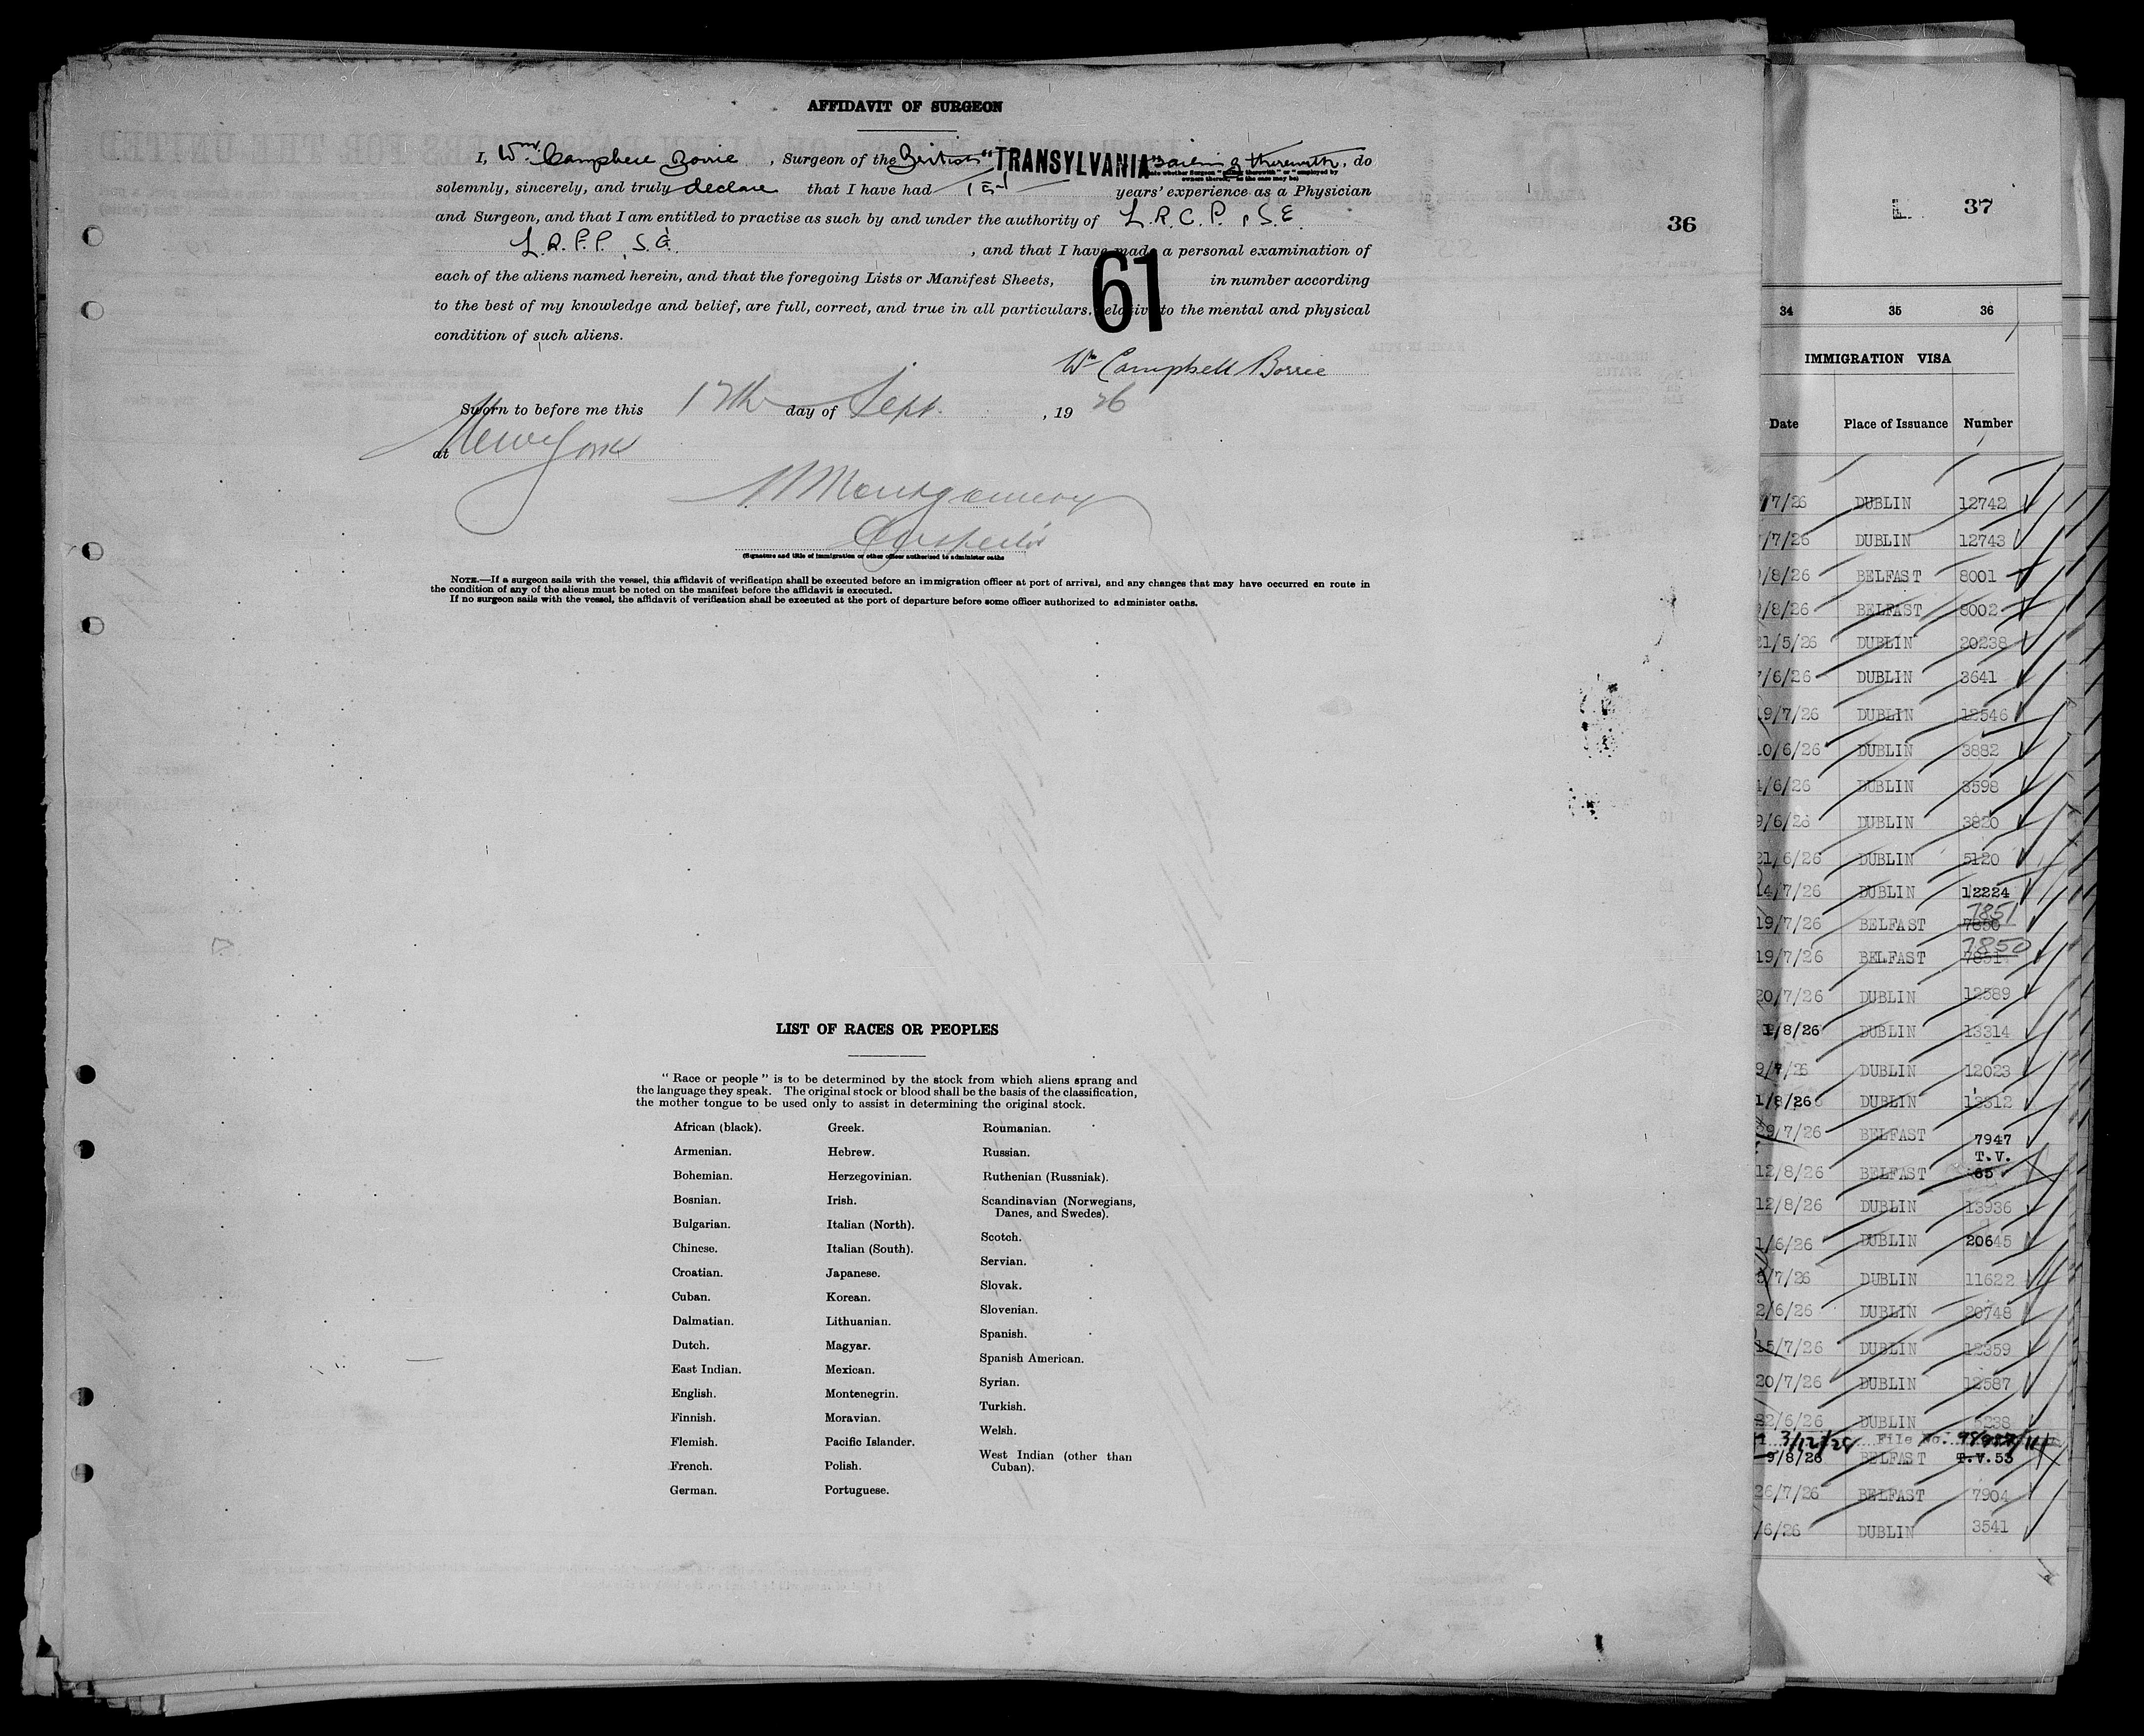 AFFIDAVIT OF SURGEON
I, Wm. Campbell Borrie, Surgeon of the British "TRANSYLVANIA" sailing therewith, do
solemnly, sincerely, and truly declare that I have had years' experience as a Physician
and Surgeon, and that I am entitled to practise as such by and under the authority of L.R.C.P., S.E.
, and that I have made a personal examination of
each of the aliens named herein, and that the foregoing Lists or Manifest Sheets, 61 in number according
to the best of my knowledge and belief, are full, correct, and true in all particulars, relative to the mental and physical
condition of such aliens.
Wm Campbell Borrie
Sworn to before me this 12th day of Sept. , 19 26
at New York
Montgomery
Inspector
(Signature and title of immigration or other officer authorized to administer oaths
NOTE.—If a surgeon sails with the vessel, this affidavit of verification shall be executed before an immigration officer at port of arrival, and any changes that may have occurred en route in
the condition of any of the aliens must be noted on the manifest before the affidavit is executed.
If no surgeon sails with the vessel, the affidavit of verification shall be executed at the port of departure before some officer authorized to administer oaths.
36
LIST OF RACES OR PEOPLES
" Race or people " is to be determined by the stock from which aliens sprang and
the language they speak. The original stock or blood shall be the basis of the classification,
the mother tongue to be used only to assist in determining the original stock.
African (black).
Armenian.
Bohemian.
Bosnian.
Bulgarian.
Chinese.
Croatian.
Cuban.
Dalmatian.
Dutch.
East Indian.
English.
Finnish.
Flemish.
French.
German.
Greek.
Hebrew.
Herzegovinian.
Irish.
Italian (North).
Italian (South).
Japanese.
Korean.
Lithuanian.
Magyar.
Mexican.
Montenegrin.
Moravian.
Pacific Islander.
Polish.
Portuguese.
Roumanian.
Russian.
Ruthenian (Russniak).
Scandinavian (Norwegians,
Danes, and Swedes).
Scotch.
Servian.
Slovak.
Slovenian.
Spanish.
Spanish American.
Syrian.
Turkish.
Welsh.
West Indian (other than
Cuban).
37
34 35 36
IMMIGRATION VISA
Date Place of Issuance Number
7/26 DUBLIN 12742
/7/26 DUBLIN 12743
/8/26 BELFAST 8001
/8/26 BELFAST 8002
21/5/26 DUBLIN 20238
7/6/26 DUBLIN 3641
9/7/26 DUBLIN 12546
10/6/26 DUBLIN 3882
/6/26 DUBLIN 3598
9/6/26 DUBLIN 3820
21/6/26 DUBLIN 5120
14/7/26 DUBLIN 12224
7851
19/7/26 BELFAST 7850
7850
19/7/26 BELFAST 7851
20/7/26 DUBLIN 12589
/8/26 DUBLIN 13314
9/7/26 DUBLIN 12023
1/8/26 DUBLIN 13312
9/7/26 BELFAST 7947
T.V.
12/8/26 BELFAST 65
12/8/26 DUBLIN 13936
1/6/26 DUBLIN 20645
/7/26 DUBLIN 11622
2/6/26 DUBLIN 20748
15/7/26 DUBLIN 12359
20/7/26 DUBLIN 12587
22/6/26 DUBLIN 5238
3/12/28 File No.
9/8/26 BELFAST T.V.53
26/7/26 BELFAST 7904
/6/26 DUBLIN 3541